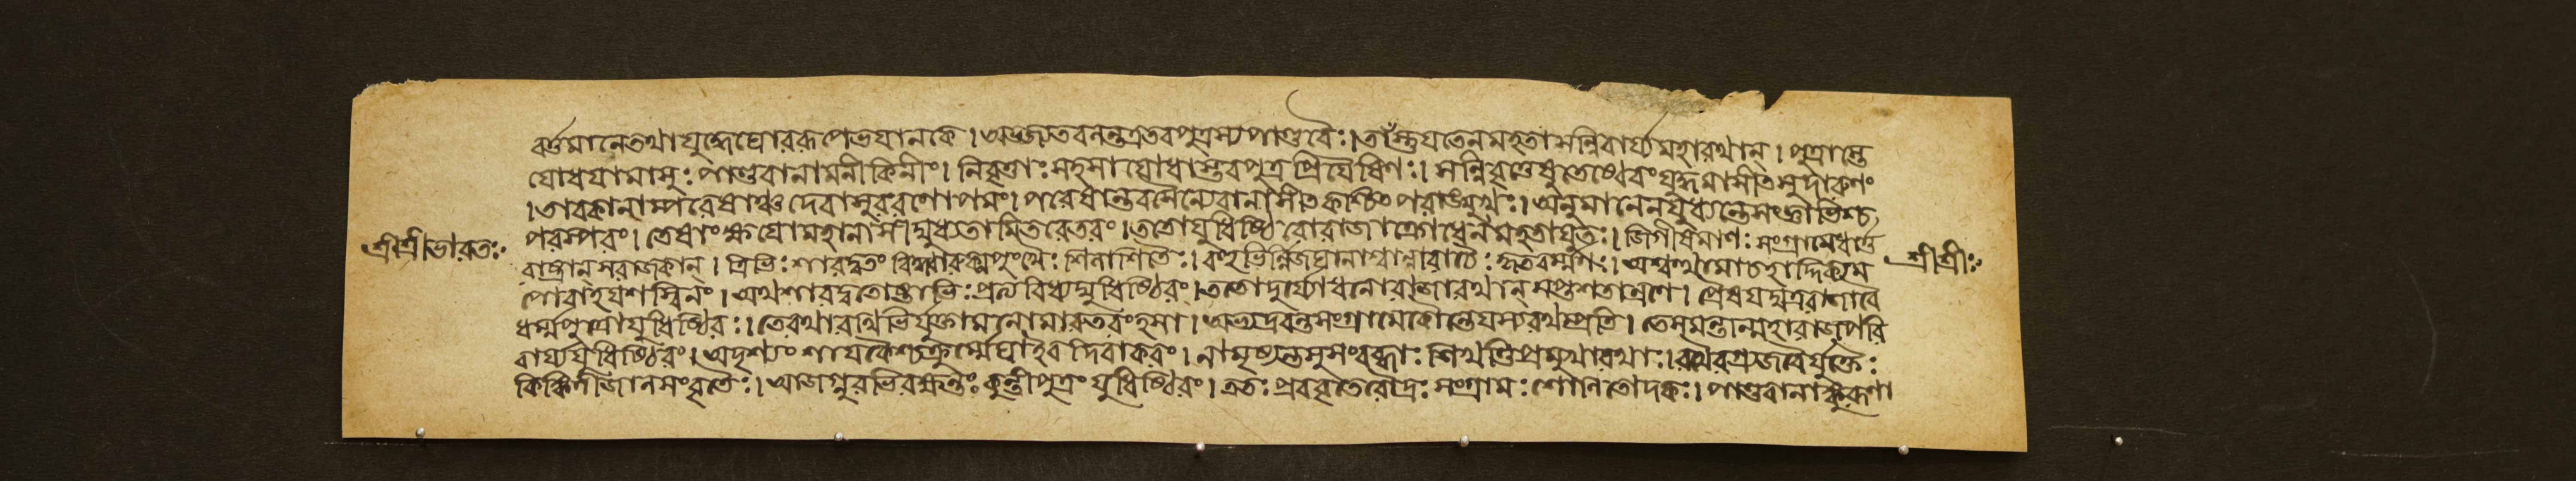 বর্ত্তমানেতথাযুদ্ধেঘোররূপেভয়ানকে। অভজ্যতবলন্তত্রতবপুত্রস্যপাণ্ডবৈঃ। তাংস্তুযত্নেনমহতাসন্নিবার্য্যমহারথান্। পুত্রাস্তে
যোধয়ামাসুঃ পাণ্ডবানামনীকিনীং। নিবৃত্তাঃ সহসাযোধাস্তবপুত্রপ্রিয়ৈষিণঃ। সন্নিবৃত্তেষুতেষ্বেবংযুদ্ধমাসীৎসুদারুণং
। তাবকানাম্পরেষাঞ্চদেবাসুররণোপমং। পরেষান্তবসৈন্যেবানাসীৎকশ্চিৎপরাঙ্মুখঃ। অনুমানেনযুধ্যন্তেসংজ্ঞাভিশ্চ
পরস্পরং। তেষাংক্ষয়োমহানাসীদ্যুধ্যতামিতরেতরং। ততোযুধিষ্ঠিরোরাজাক্রোধেনমহতাযুতঃ। জিগীষমাণঃ সংগ্রামেধার্ত্ত
শ্রীশ্রীভারতঃ
রাষ্ট্রান্সরাজকান্। ত্রিভিঃ শারদ্বতং বিদ্ধ্বারুক্মপুংখৈঃ শিলাশিতৈঃ। চতুর্ভিন্নিজঘানাশ্বান্নারাচৈঃ কৃতবর্ম্মণঃ। অশ্বত্থামাচহার্দ্দিক্যম
শ্রীশ্রীঃ
পোবাহযশস্বিনং। অথশারদ্বতোষ্টাভিঃ প্রত্যবিধ্যদ্যুধিষ্ঠিরং। ততোদুর্য্যোধনোরাজারথান্সপ্তশতান্রণে। প্রেষয়দ্যত্ররাজাবৈ
ধর্ম্মপুত্রোযুধিষ্ঠিরঃ। তেরথারথিভির্যুক্তামনোমারুতরংহসা। অভ্যদ্রবন্তসংগ্রামেকৌন্তেয়স্যরথম্প্রতি। তেসমন্তান্মহারাজপরি
বার্য্যযুধিষ্ঠিরং। অদৃশ্যং শায়কৈশ্চক্রুর্ম্মেঘাইবদিবাকরং। নামৃষ্যন্তসুসংরব্ধাঃ শিখণ্ডিপ্রমুখারথাঃ। রথৈরগ্র্যজবৈর্যুক্তৈঃ
কিঙ্কিণীজালসংবৃতৈঃ। আজগ্মুরভিরক্ষন্তঃ কুন্তীপুত্রং যুধিষ্ঠিরং। ততঃ প্রববৃতেরৌদ্রঃ সংগ্রামঃ শোণিতোদকঃ। পাণ্ডবানাঙ্কুরূণা